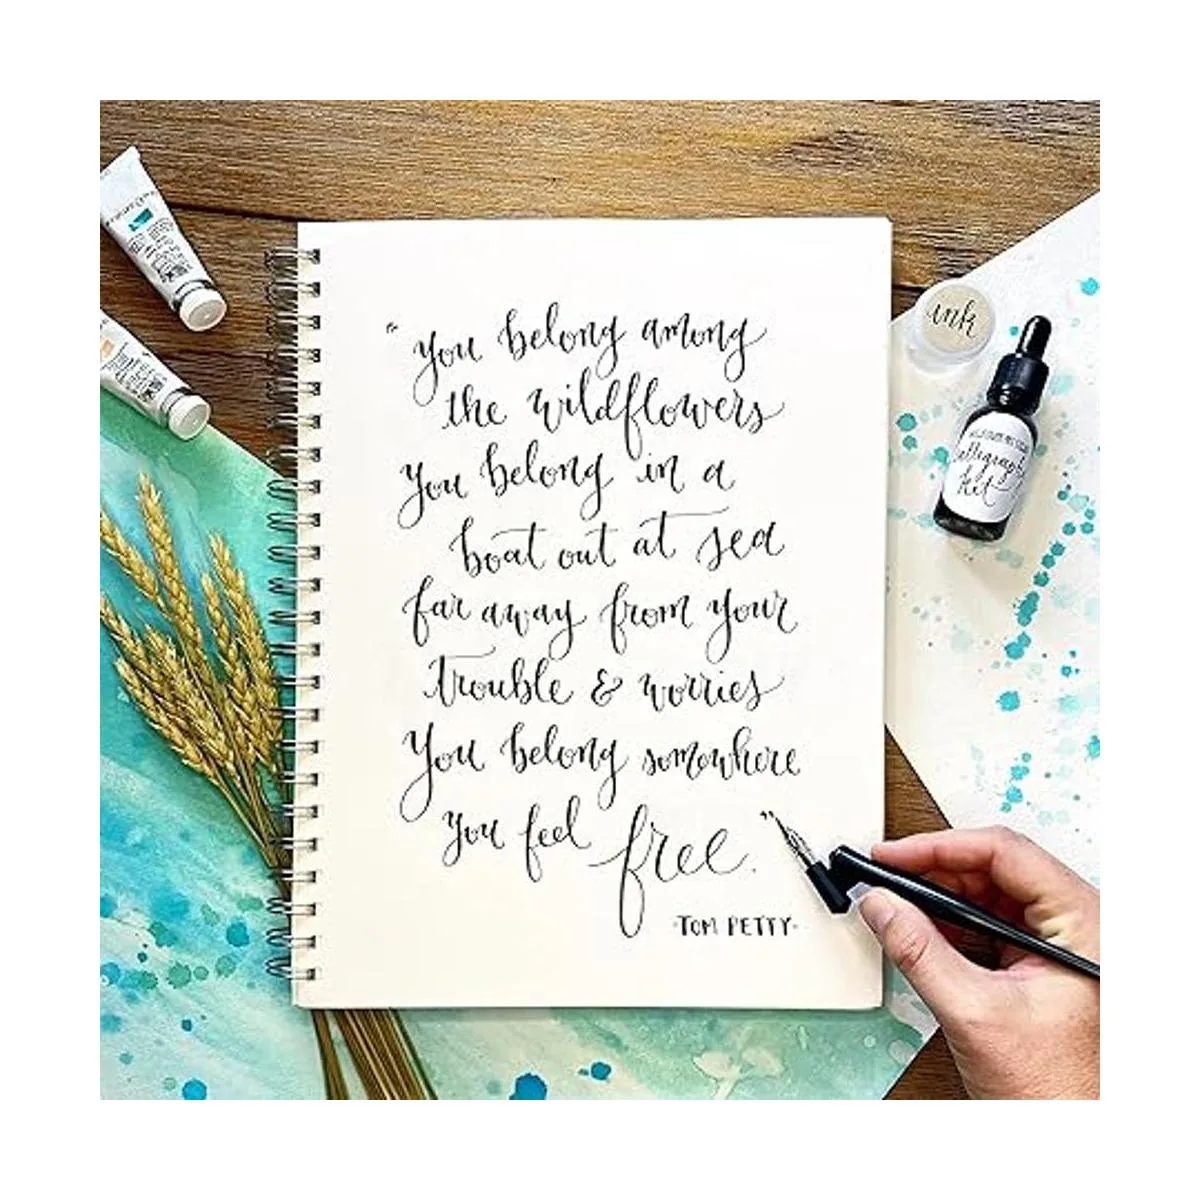 "you belong among
the wildflowers
you belong in a
boat out at sea
far away from your
trouble & worries
you belong somewhere
you feel free."
-TOM PETTY-
ink
Calligraphy
kit